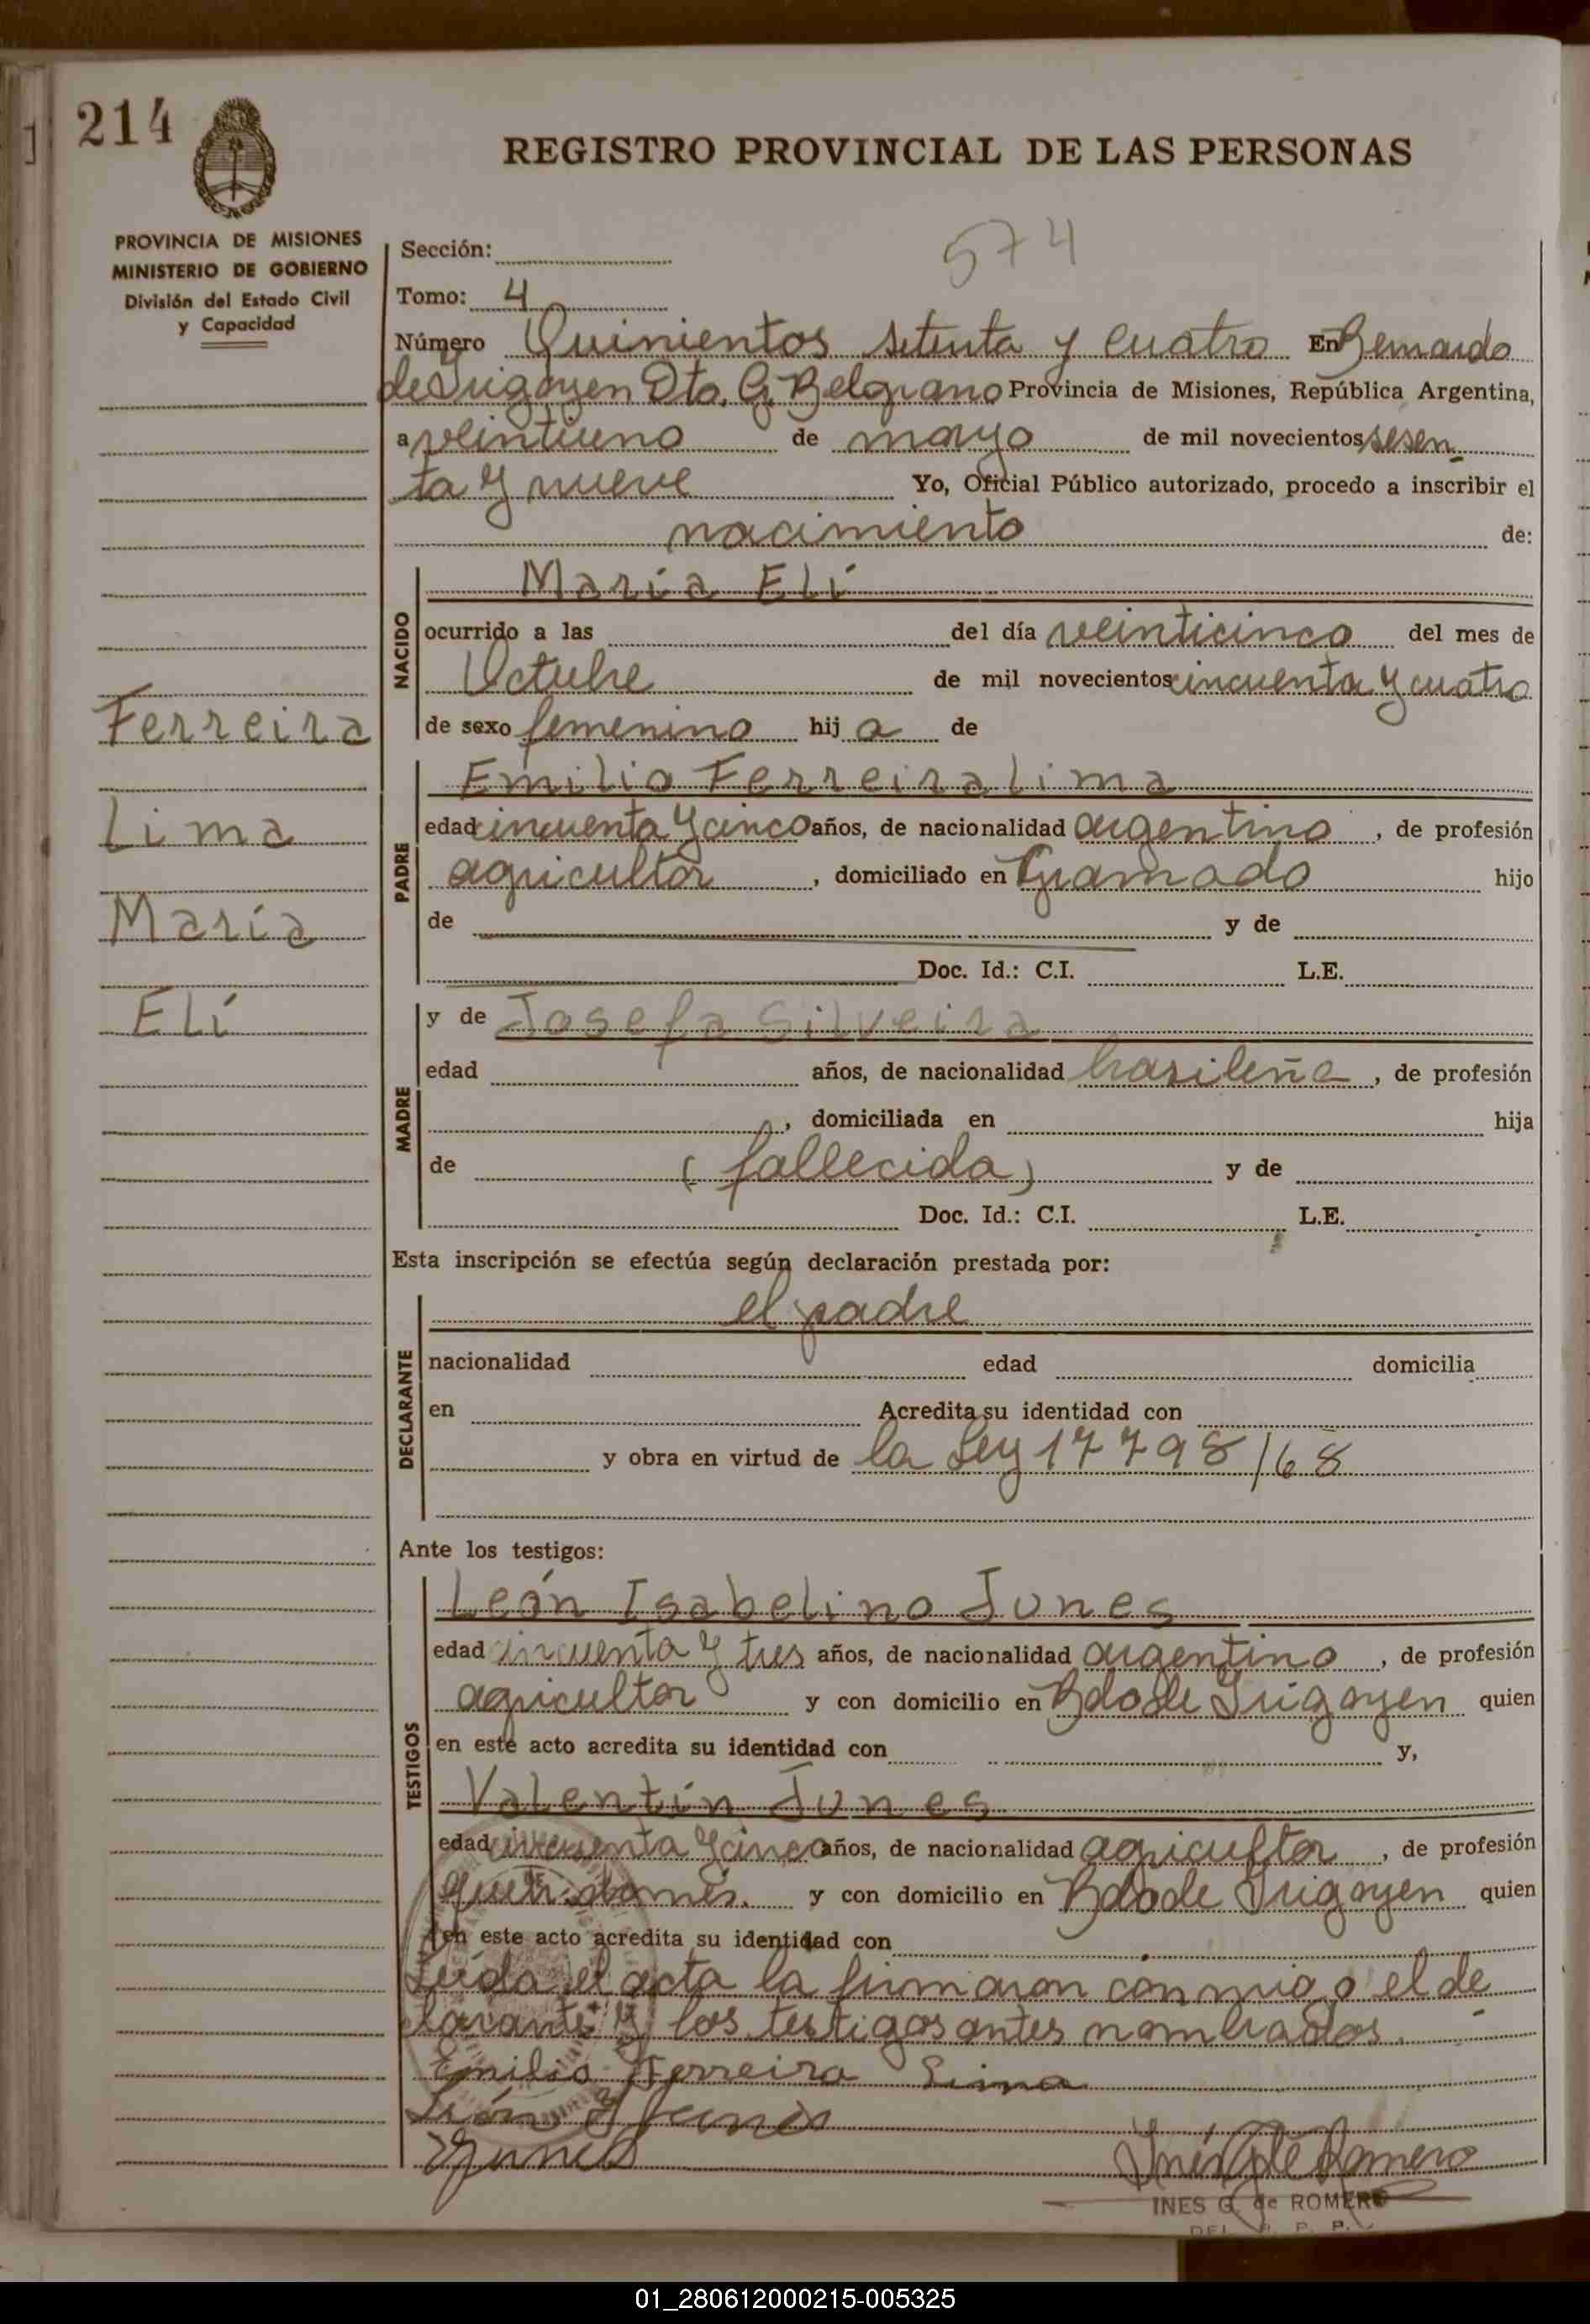 214
REGISTRO PROVINCIAL DE LAS PERSONAS
PROVINCIA DE MISIONES
MINISTERIO DE GOBIERNO
División del Estado Civil
y Capacidad
574
Sección:
Tomo: 4
Número Quinientos setenta y cuatro En Bernardo
de Irigoyen Dto. G. Belgrano Provincia de Misiones, República Argentina,
a veintiuno de mayo de mil novecientos sesen
ta y nueve Yo, Oficial Público autorizado, procedo a inscribir el
nacimiento de:
NACIDO
María Elí
ocurrido a las del día veinticinco del mes de
Octubre de mil novecientos cincuenta y cuatro
de sexo femenino hij a de
Ferreira
Lima
María
Elí
PADRE
Emilio Ferreira Lima
edad cincuenta y cinco años, de nacionalidad argentino, de profesión
agricultor, domiciliado en Gramado hijo
de y de
Doc. Id.: C.I. L.E.
MADRE
y de Josefa Silveira
edad años, de nacionalidad brasileña, de profesión
, domiciliada en hija
de (fallecida) y de
Doc. Id.: C.I. L.E.
Esta inscripción se efectúa según declaración prestada por:
DECLARANTE
el padre
nacionalidad edad domicilia
en Acredita su identidad con
y obra en virtud de la Ley 17798/68
Ante los testigos:
TESTIGOS
León Isabelino Junes
edad cincuenta y tres años, de nacionalidad argentino, de profesión
agricultor y con domicilio en Bdo de Irigoyen quien
en este acto acredita su identidad con y,
Valentín Junes
edad cincuenta y cinco años, de nacionalidad agricultor, de profesión
y con domicilio en Bdo de Irigoyen quien
en este acto acredita su identidad con
Leída el acta la firmaron conmigo el de
clarante y los testigos antes nombrados.
Emilio Ferreira Lima
León J Junes
Junes
Inés G de Romero
INES G. de ROMERO
DEL. R. P. P.
01_280612000215-005325